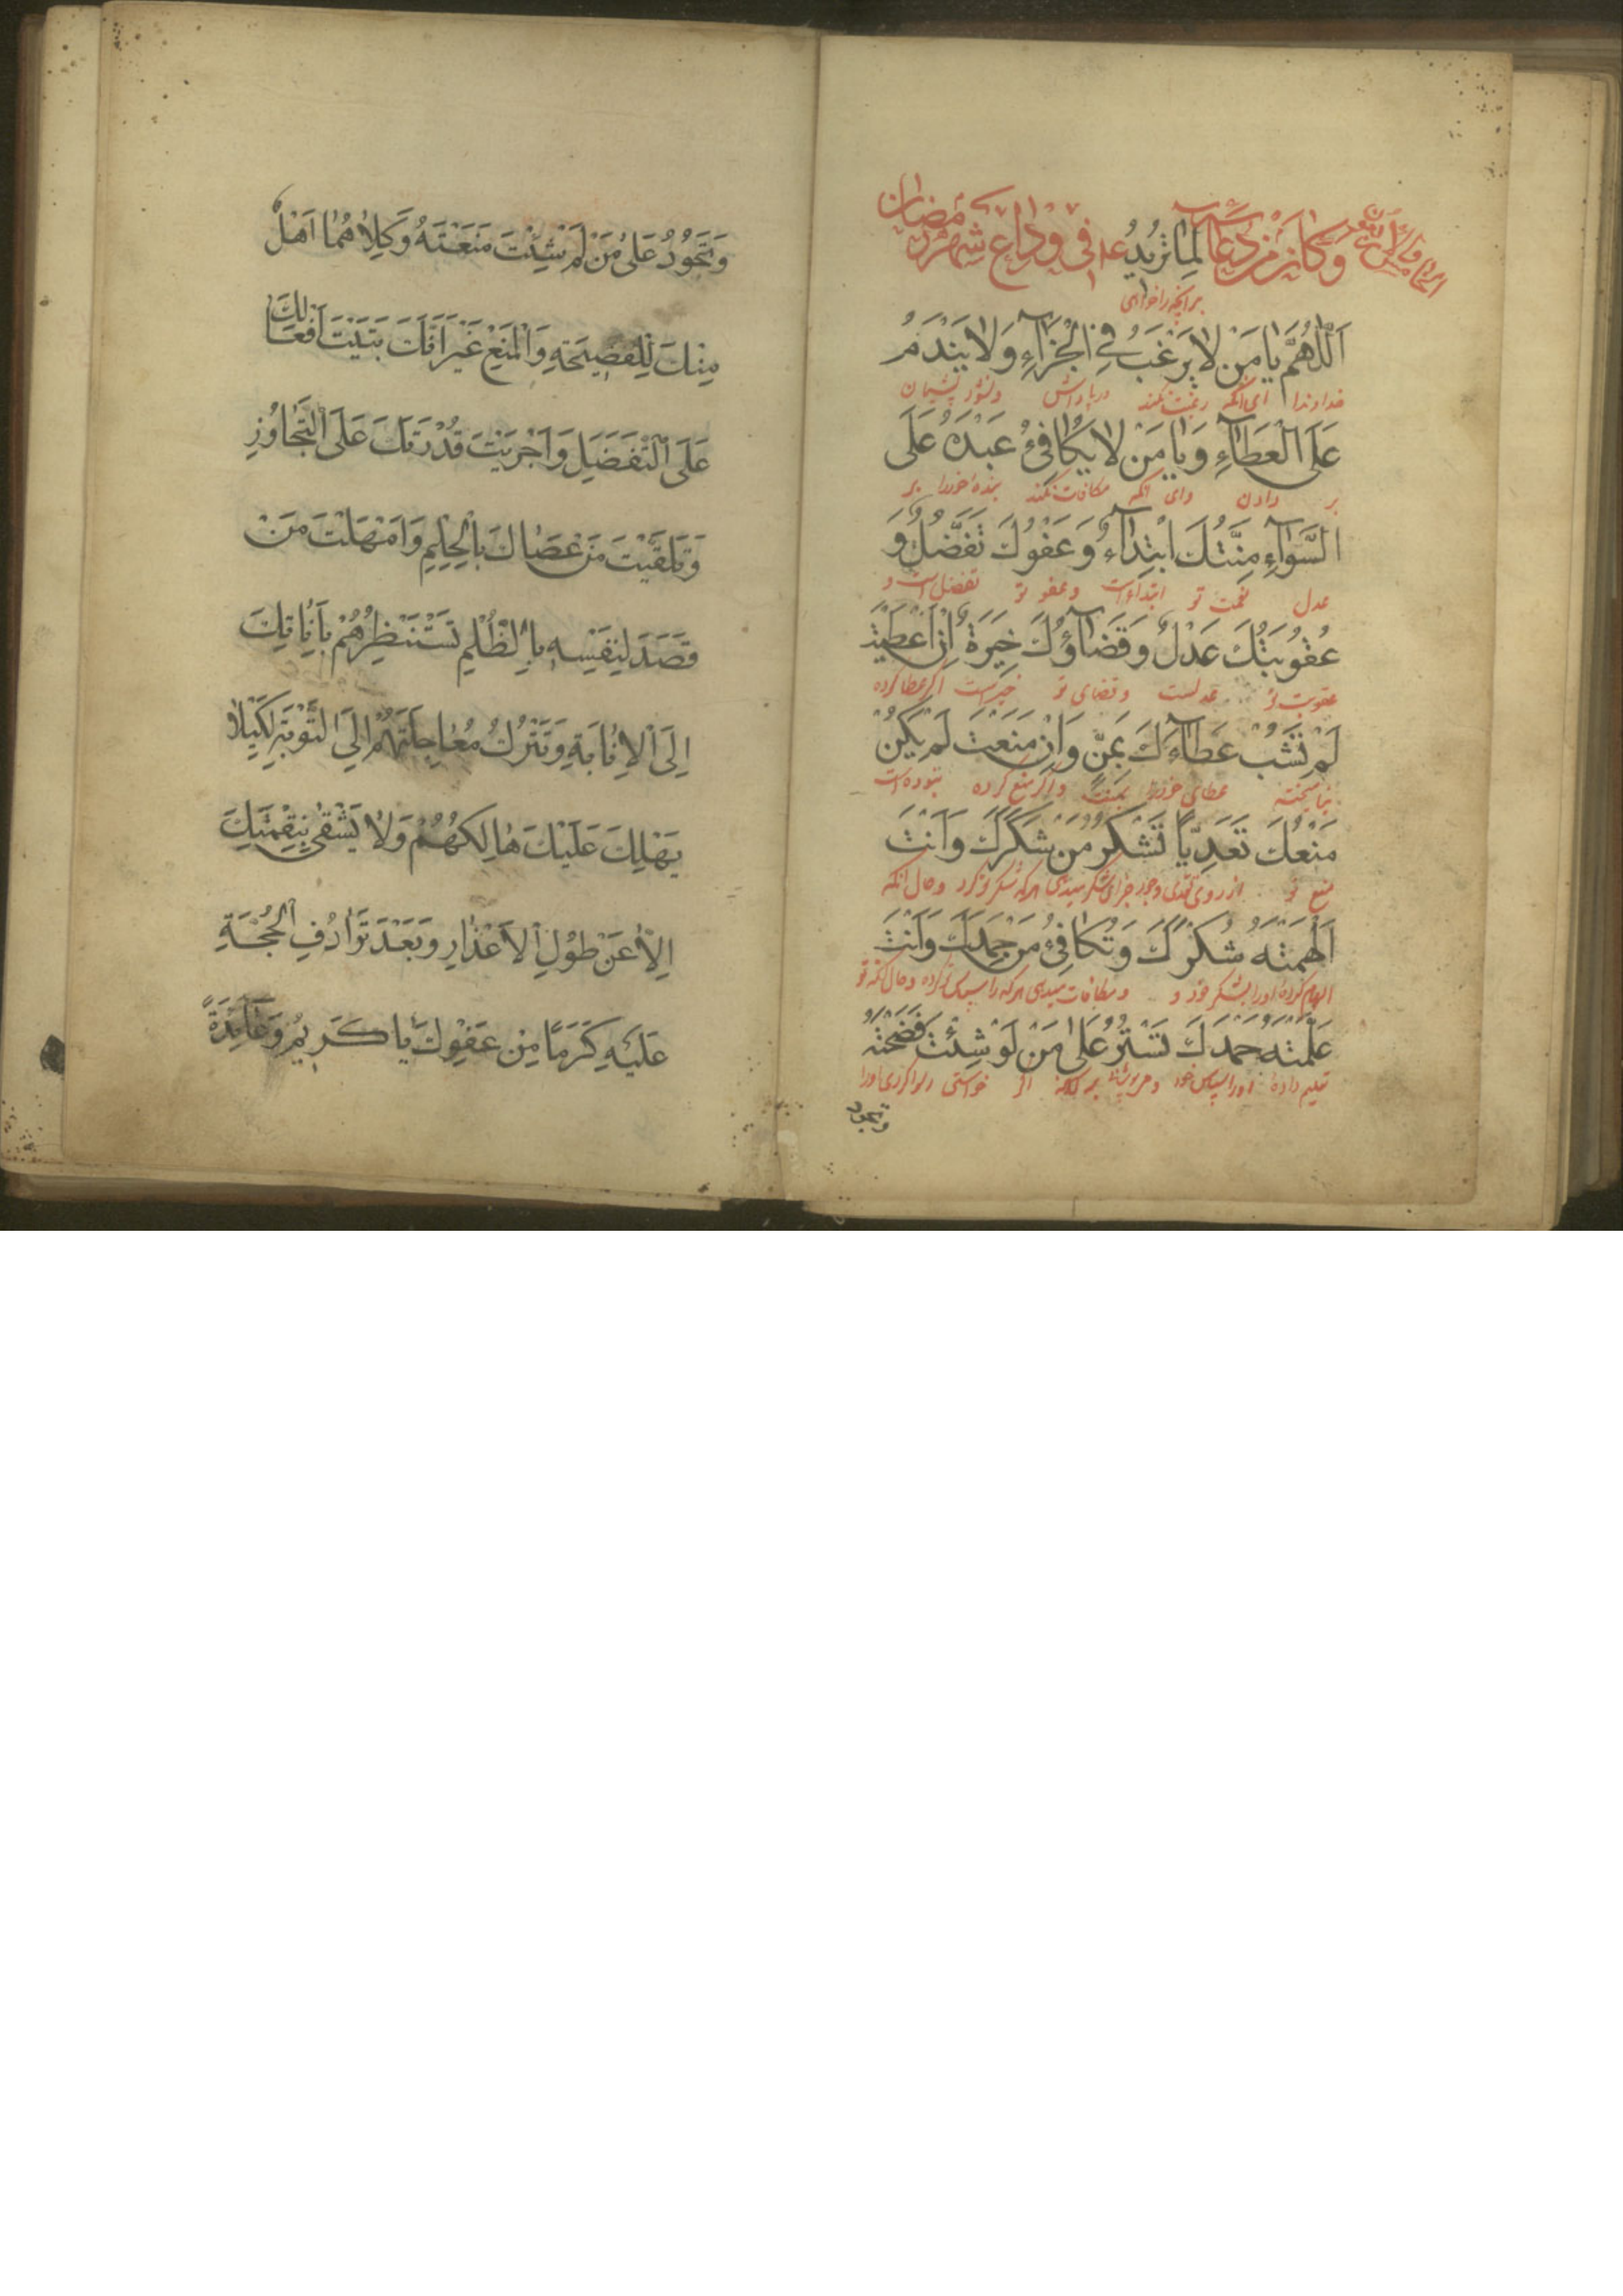 وَكَانَ مِنْ دُعَائِهِ لِمَا تُرِيدُ عم فِي وَدَاعِ شَهْرِ رَمَضَانَ
الخامس والاربعون
برانچه را خواهی
اَللّٰهُمَّ يَا مَنْ لَا يَرْغَبُ فِي الْجَزَآءِ وَلَا يَنْدَمُ
خداوندا ای آنکه رغبت نکند در پاداش ونشود پشیمان
عَلَى الْعَطَآءِ وَيَا مَنْ لَا يُكَافِئُ عَبْدَهُ عَلَى
بر دادن وای آنکه مکافات نکند بنده خود را بر
السَّوَآءِ مِنَّتُكَ ابْتِدَآءٌ وَعَفْوُكَ تَفَضُّلٌ وَ
عدل نعمت تو ابتداء است وعفو تو تفضل است و
عُقُوبَتُكَ عَدْلٌ وَقَضَآؤُكَ خِيَرَةٌ اِنْ اَعْطَيْتَ
عقوبت تو عدلست وقضای تو خیر است اگر عطا کرده
لَمْ تَشُبْ عَطَآءَكَ بِمَنٍّ وَاِنْ مَنَعْتَ لَمْ يَكُنْ
نیامیخته عطای خود را بمنت واگر منع کرده نبوده است
مَنْعُكَ تَعَدِّيًا تَشْكُرُ مَنْ شَكَرَكَ وَاَنْتَ
منع تو از روی تعدی وجور جزای شکر میدهی هر که شکر تو کرد وحال آنکه
اَلْهَمْتَهُ شُكْرَكَ وَتُكَافِئُ مَنْ حَمِدَكَ وَاَنْتَ
الهام کرده اورا بشکر خود و ومکافات میدهی هر که را سپاس تو کرده وحال آنکه تو
عَلَّمْتَهُ حَمْدَكَ تَسْتُرُ عَلَى مَنْ لَوْ شِئْتَ فَضَحْتَهُ
تعلیم داده اورا سپاس خود بر آنکه اگر خواستی رسوا کردی اورا
وتجود
وَتَجُودُ عَلَى مَنْ لَمْ شِئْتَ مَنَعْتَهُ وَكِلَاهُمَا اَهْلٌ
مِنْكَ لِلْفَضِيحَةِ وَالْمَنْعِ غَيْرَ اَنَّكَ بَنَيْتَ اَفْعَالَكَ
عَلَى التَّفَضُّلِ وَاَجْرَيْتَ قُدْرَتَكَ عَلَى التَّجَاوُزِ
وَتَلَقَّيْتَ مَنْ عَصَاكَ بِالْحِلْمِ وَاَمْهَلْتَ مَنْ
قَصَدَ لِنَفْسِهِ بِالظُّلْمِ تَسْتَنْظِرُهُمْ بِاَنَاتِكَ
اِلَى الْاِنَابَةِ وَتَتْرُكُ مُعَاجَلَتَهُمْ اِلَى التَّوْبَةِ لِكَيْلَا
يَهْلِكَ عَلَيْكَ هَالِكُهُمْ وَلَا يَشْقَى بِنِقْمَتِكَ
اِلَّا عَنْ طُولِ الْاَعْذَارِ وَبَعْدَ تَرَادُفِ الْحُجَّةِ
عَلَيْهِ كَرَمًا مِنْ عَفْوِكَ يَا كَرِيمُ وَعَائِدَةً